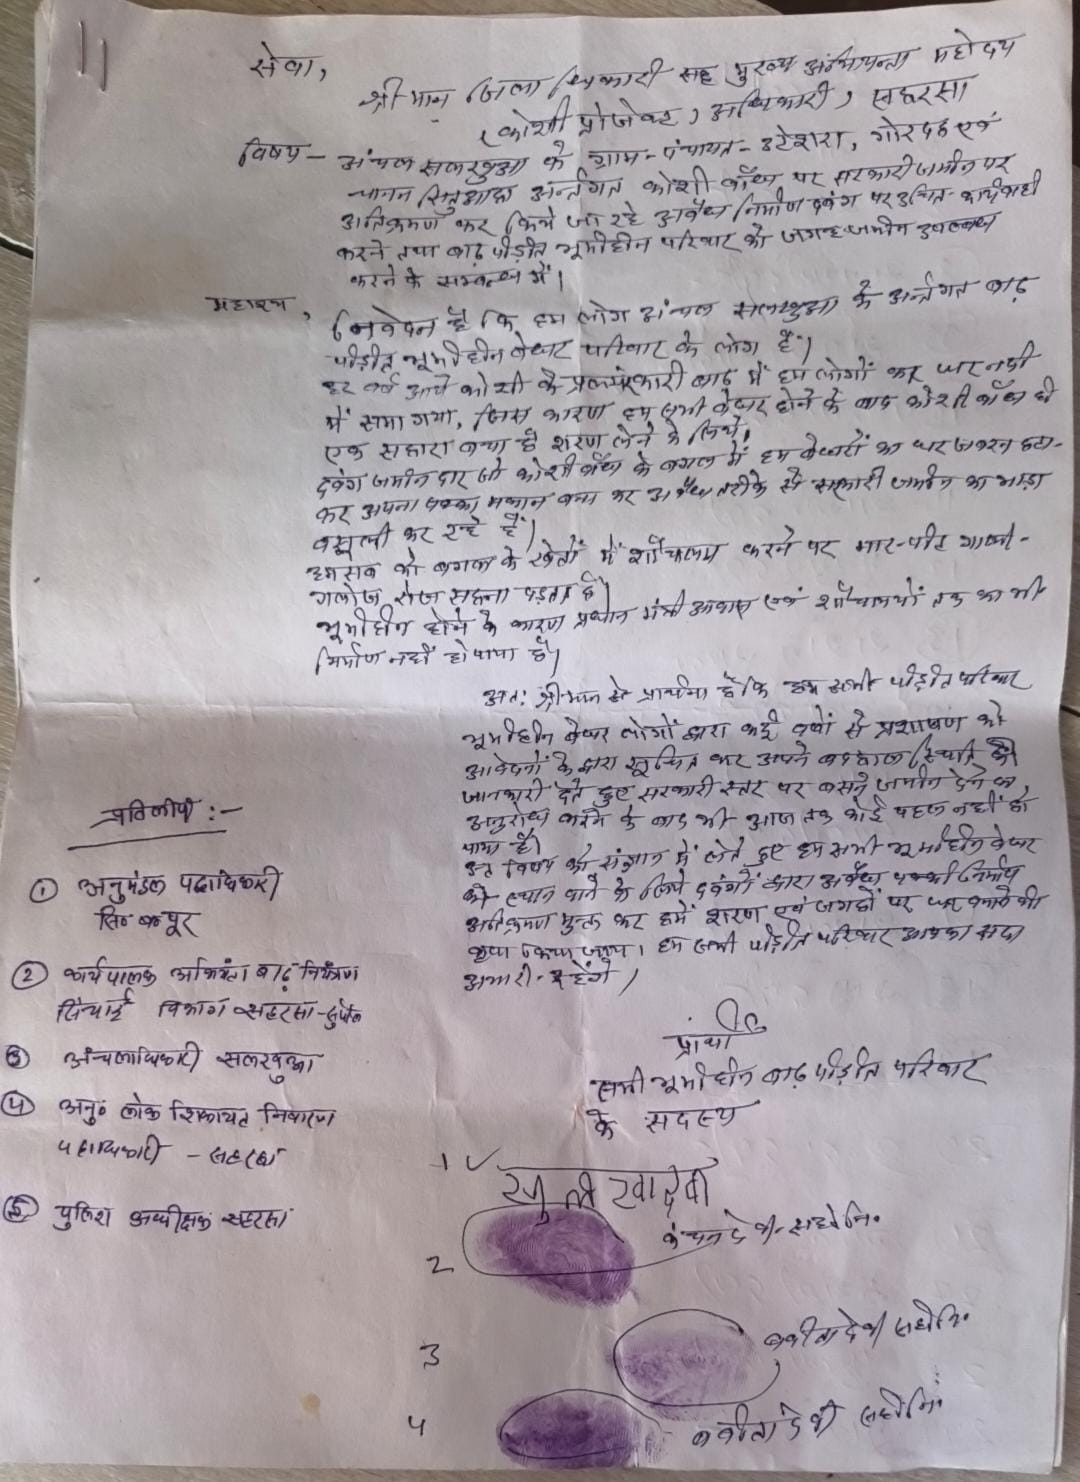 11
सेवा,
श्रीमान जिला धिकारी सह मुख्य अभियन्ता महोदय
(कोशी प्रोजेक्ट) अधिकारी, सहरसा
विषय - अंचल सलखुआ के ग्राम-पंचायत- उटेशरा, गोरदह एवं
चानन अंर्न्तगत कोशी बाँध पर सरकारी जमीन पर
अतिक्रमण कर किये जा रहे अवैध निर्माण दबंग पर उचित कार्यवाही
करने तथा बाढ़ पीड़ीत भूमीहीन परिवार को जगह-जमीन उपलब्ध
करने के सम्बन्ध में।
महाशय,
निवेदन है कि हम लोग अंचल सलखुआ के अंर्न्तगत बाढ़
पीड़ीत भूमीहीन बेघर परिवार के लोग हैं।
हर वर्ष आये कोशी के प्रलयंकारी बाढ़ में हम लोगों का घर नदी
में समा गया, जिस कारण हम सभी बेघर होने के बाद कोशी बाँध ही
एक सहारा बचा है शरण लेने के लिये।
दबंग जमीन दार जो कोशी बाँध के बगल में हम बेघरों का घर जबरन हटा-
कर अपना पक्का मकान बना कर अवैध तरीके से सरकारी जमीन का भाड़ा
वसूली कर रहे हैं।
हम सब को बगल के खेतों में शौचालय करने पर मार-पीट गाली-
गलौज रोज सहना पड़ता है।
भूमीहीन होने के कारण प्रधान मंत्री आवास एवं शौचालयों तक का भी
निर्माण नहीं हो पाया है।
अतः श्रीमान से प्रार्थना है कि हम सभी पीड़ीत परिवार
भूमीहीन बेघर लोगों द्वारा कई वर्षो से प्रशाषण को
आवेदनों के द्वारा सूचित कर अपने बदहाल स्थिति की
जानकारी देते हुए सरकारी स्तर पर बसने जमीन देने का
अनुरोध करने के बाद भी आज तक कोई पहल नहीं हो
पाया है।
उक्त विषय को संज्ञान में लेते हुए हम सभी भूमीहीन बेघर
को स्थान पाने के लिये दबंगों द्वारा अवैध पक्की निर्माण
अतिक्रमण मुक्त कर हमें शरण एवं जगहों पर घर बनाने की
कृपा किया जाय। हम सभी पीड़ीत परिवार आपका सदा
अभारी रहेंगे।
प्रार्थी
सभी भूमीहीन बाढ़ पीड़ीत परिवार
के सदस्य
प्रतिलीपी :-
① अनुमंडल पदाधिकारी
सि० बख्तपूर
② कार्यपालक अभियंता बाढ़ नियंत्रण
सिंचाई विभाग सहरसा-सुपौल
③ अंचलाधिकारी सलखुआ
④ अनु० लोक शिकायत निवारण
पदाधिकारी - सहरसा
⑤ पुलिश अधीक्षक सहरसा
1
2 कंचन देवी-सहोनि०
3 बबीता देवी सहोनि०
4 बबीता देवी सहोनि०